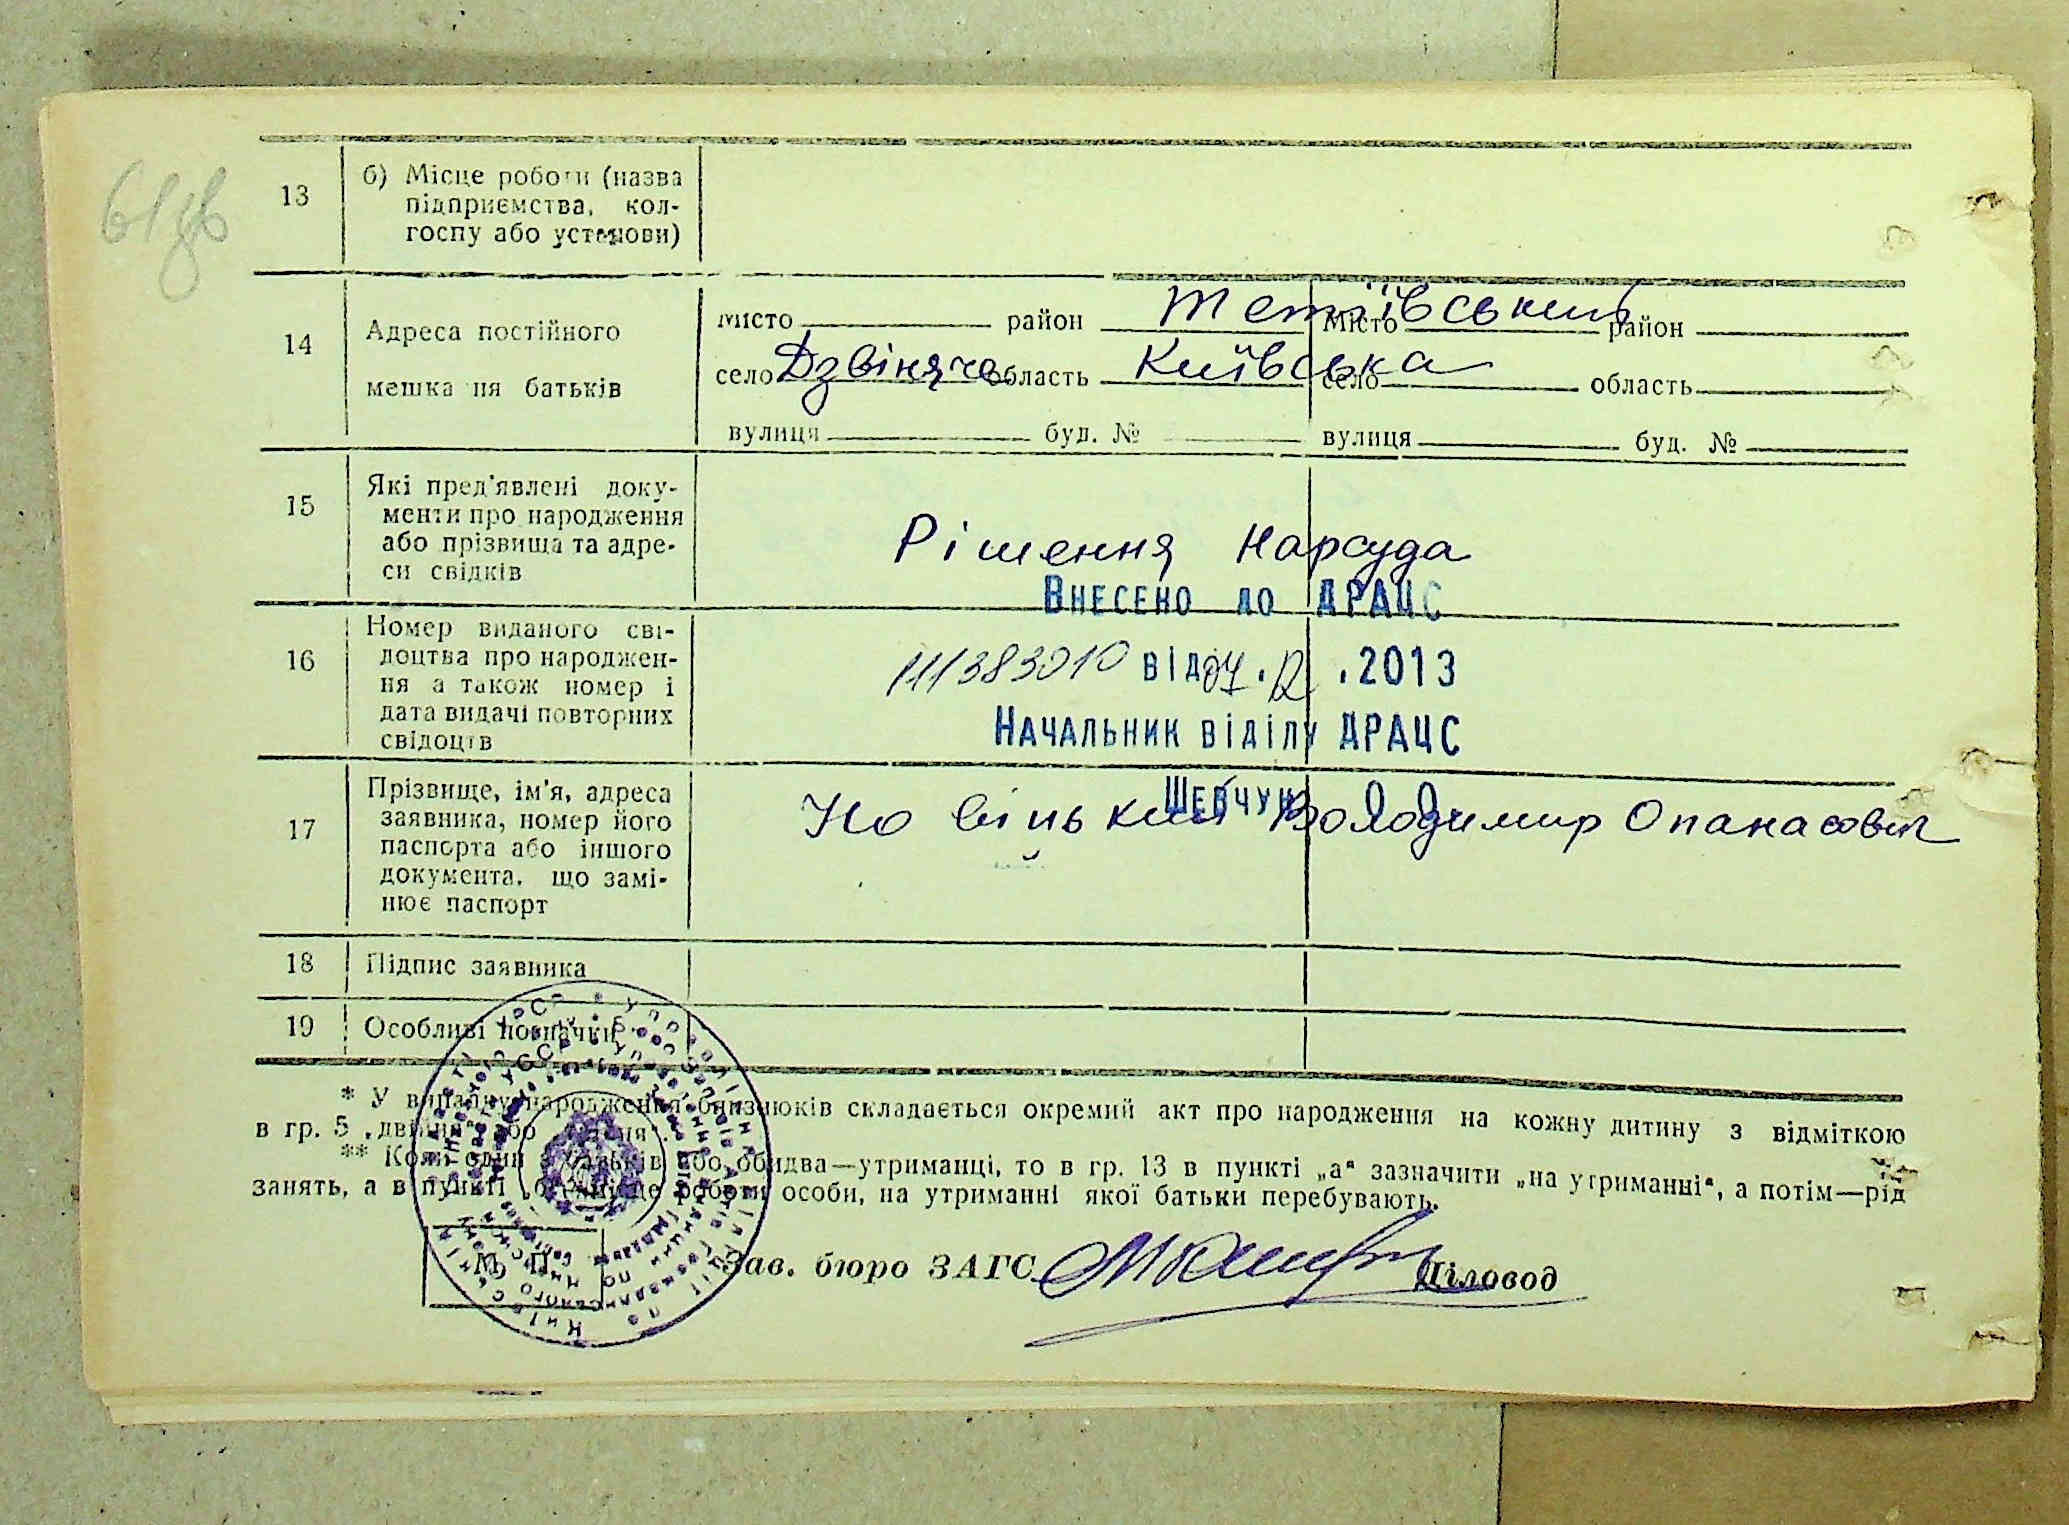 13
б) Місце роботи (назва
підприємства, кол-
госпу або установи)
14
Адреса постійного
мешкання батьків
місто район Тетіївський місто район
село Дзвіняче область Київська село область
вулиця буд. № вулиця буд. №
15
Які пред'явлені доку-
менти про народження
або прізвища та адре-
си свідків
Рішення Нарсуда
Внесено до ДРАЦС
16
Номер виданого сві-
доцтва про народжен-
ня а також номер і
дата видачі повторних
свідоцтв
від .2013
Начальник відділу ДРАЦС
17
Прізвище, ім'я, адреса
заявника, номер його
паспорта або іншого
документа, що замі-
нює паспорт
Шевчук
Володимир Опанасович
18
Підпис заявника
19
Особливі позначки
* У випадку народження близнюків складається окремий акт про народження на кожну дитину з відміткою
в гр. 5 „двійня" або
** Коли один з батьків або обидва—утриманці, то в гр. 13 в пункті „а" зазначити „на утриманні", а потім—рід
занять, а в пункті „б" місце роботи особи, на утриманні якої батьки перебувають.
М. П.
Зав. бюро ЗАГС
Діловод